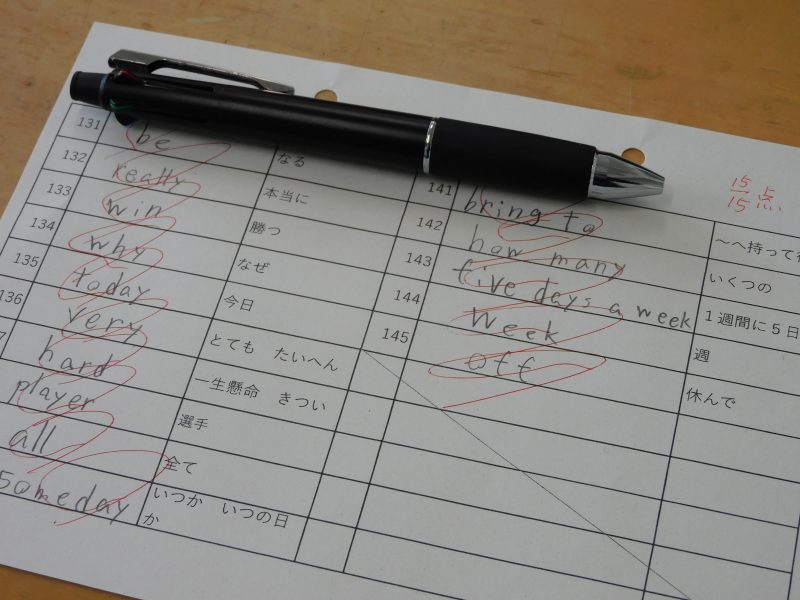 131 be なる
132 really 本当に
133 win 勝つ
134 why なぜ
135 today 今日
136 very とても たいへん
7 hard 一生懸命 きつい
player 選手
all 全て
someday いつか いつの日
か
15
15 点
141 bring to ～へ持って
142 how many いくつの
143 five days a week 1週間に5日
144 week 週
145 off 休んで